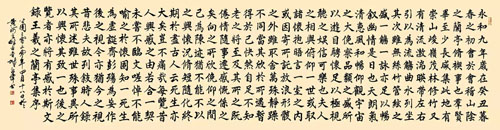 永和九年歲在癸丑暮
春之初會于會稽山陰
之蘭亭脩禊事也羣賢
畢至少長咸集此地有
崇山峻領茂林脩竹又
有清流激湍映帶左右
引以為流觴曲水列坐
其次雖無絲竹管絃之
盛一觴一詠亦足以暢
敘幽情是日也天朗氣
清惠風和暢仰觀宇宙
之大俯察品類之盛所
以遊目騁懷足以極視
聽之娛信可樂也夫人
之相與俯仰一世或取
諸懷抱悟言一室之內
或因寄所託放浪形骸
之外雖趣舍萬殊靜躁
不同當其欣於所遇暫
得於己快然自足不知
老之將至及其所之既
倦情隨事遷感慨係之
矣向之所欣俛仰之間
已為陳迹猶不能不以
之興懷況脩短隨化終
期於盡古人云死生亦
大矣豈不痛哉每覽昔
人興感之由若合一契
未嘗不臨文嗟悼不能
喻之於懷固知一死生
為虛誕齊彭殤為妄作
後之視今亦由今之視
昔悲夫故列敘時人錄
其所述雖世殊事異所
以興懷其致一也後之
覽者亦將有感於斯文
錄王羲之蘭亭集序